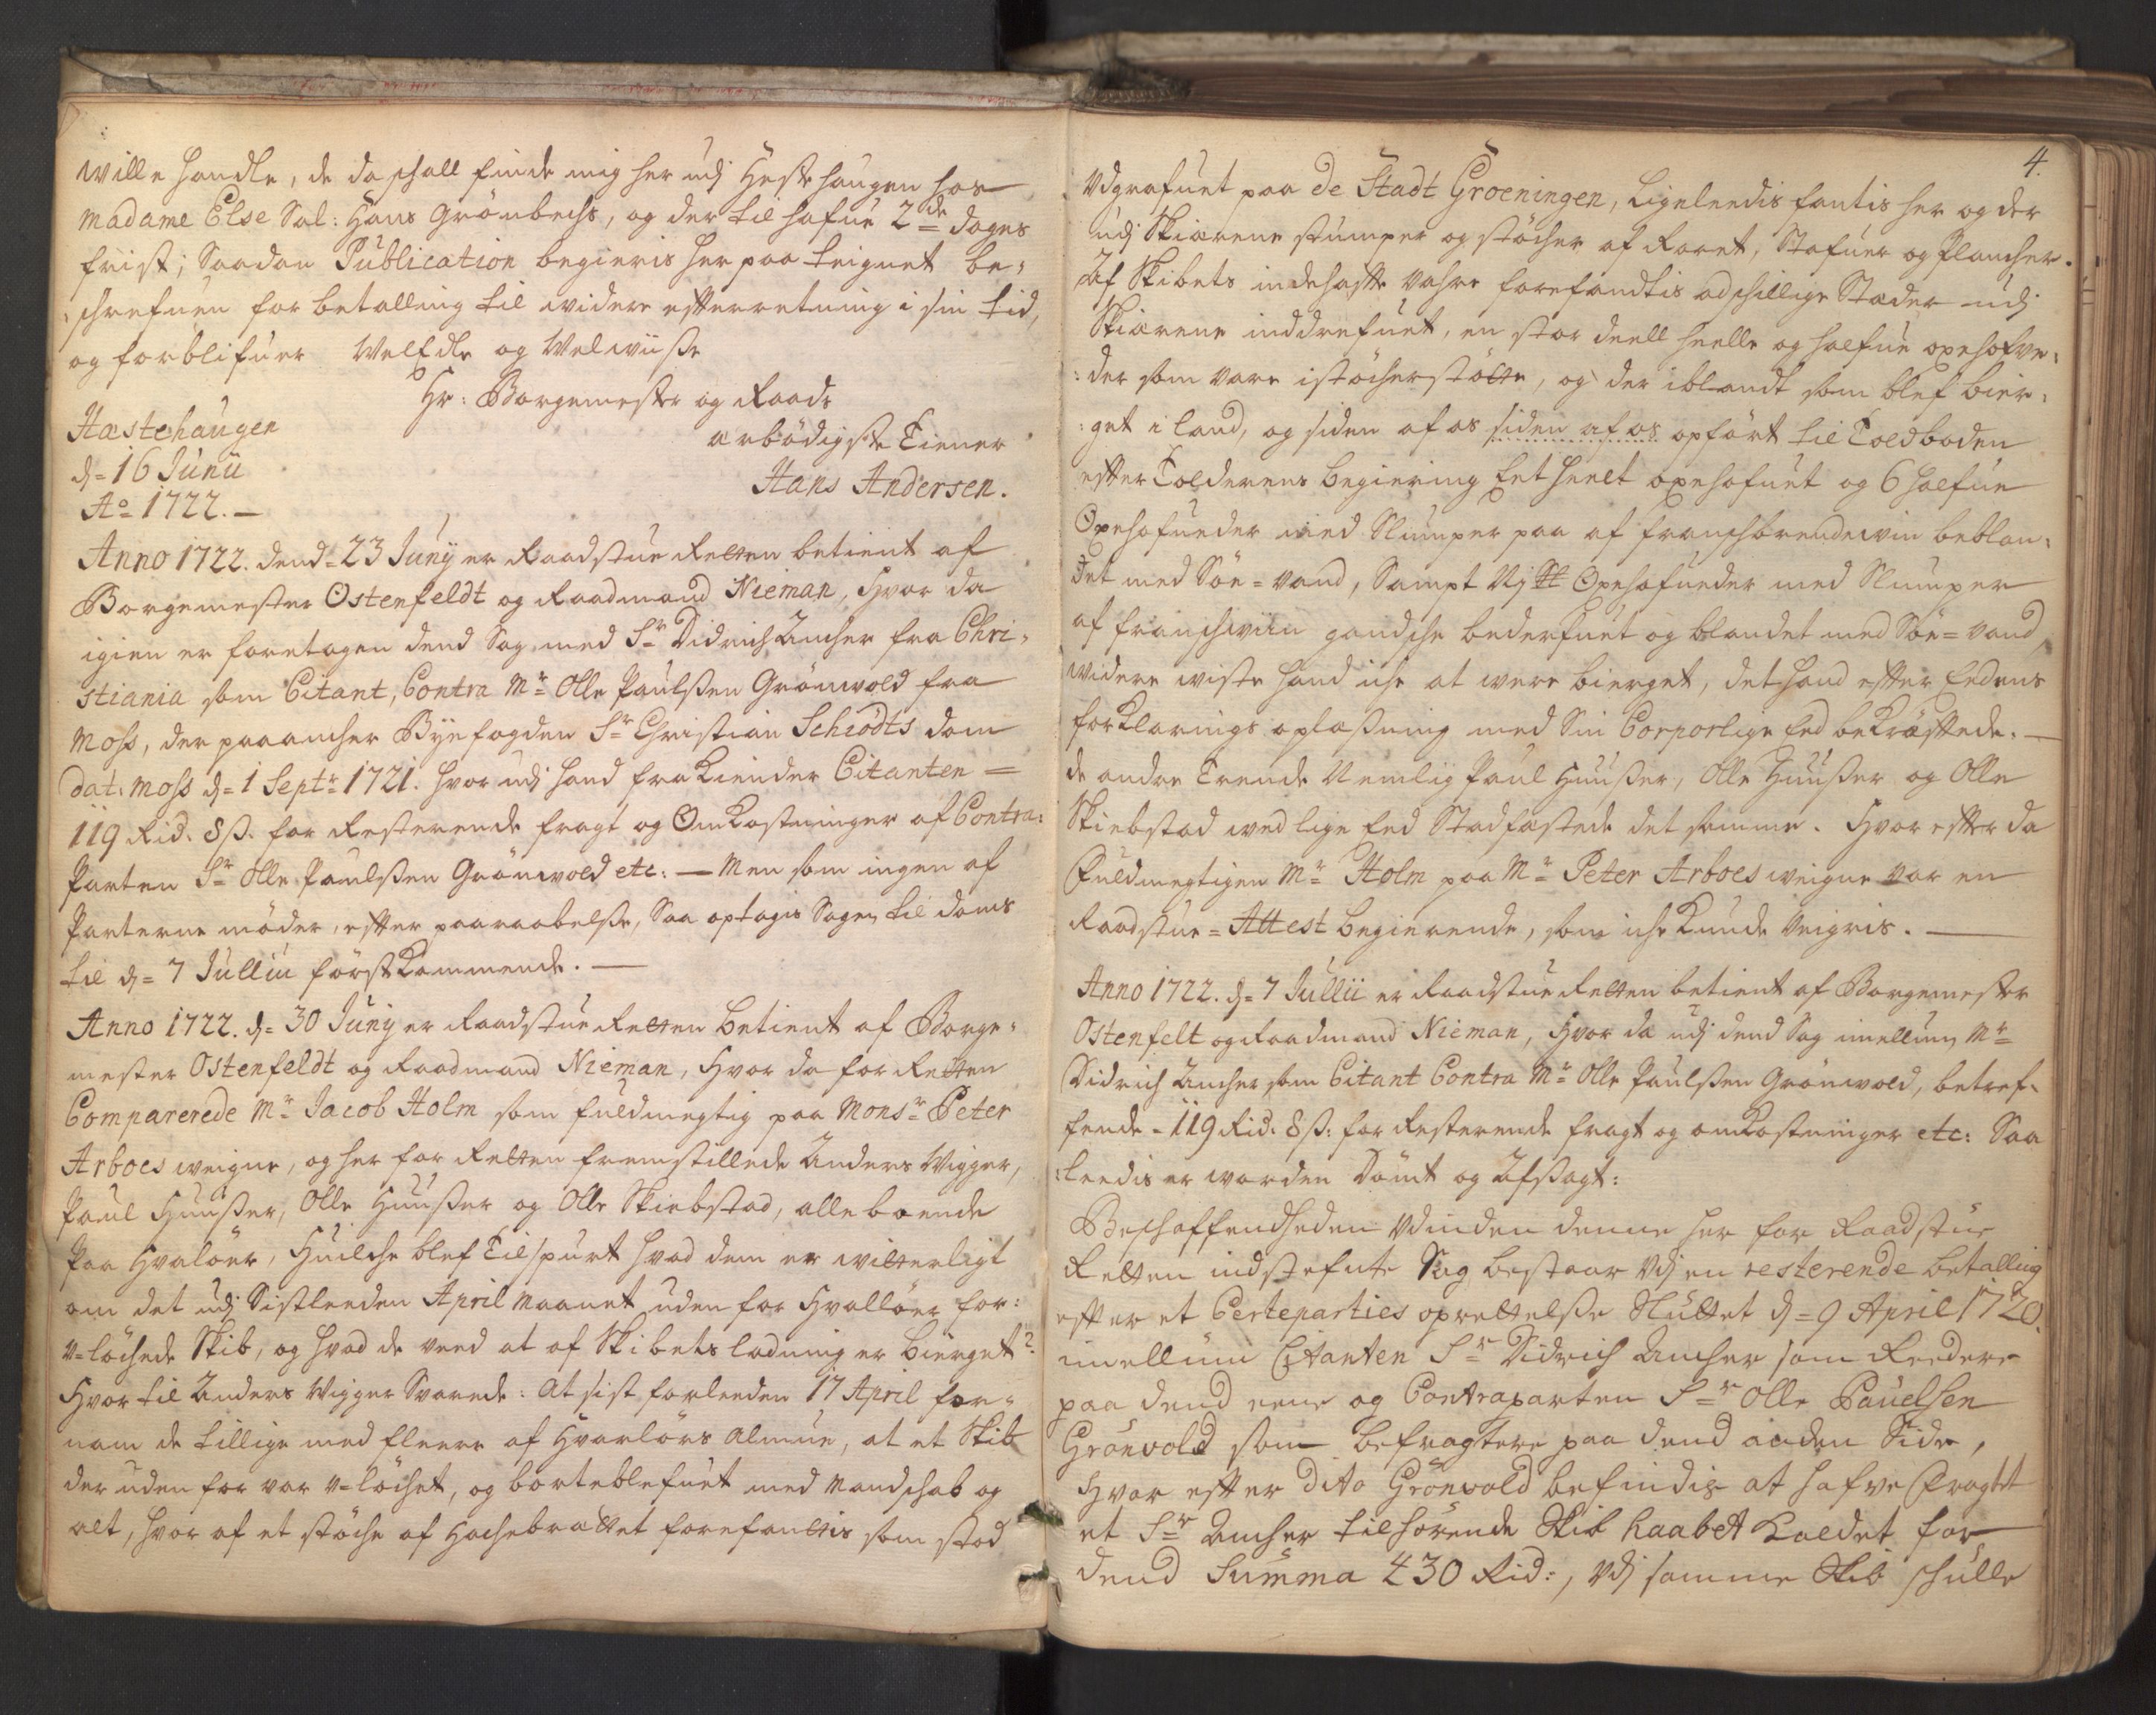 wille handle, de da schall finde mig her udj Hæstehaugen hos
Madame Else Sal: Hans Grönbechs, og der til hafue 2de dages
frist; Saadan Publication begieris her paa teignet be,
,schrefuen for betalling til widere efterretning i sin tid,
og forblifuer WelEdle og Welwiisse
Hr: Borgemester og Raads
arbödigste Tiener
Hans Andersen.
Hæstehaugen
d= 16 Junii
Ao 1722.—
Anno 1722. dend= 23 Junij er Raadstue Retten betient af
Borgemester Ostenfeldt og Raadmand Nieman, Hvor da
igien er foretagen dend Sag med Sr Didrich Ancher fra Chri,
stiania som Citant, Contra Mr Olle Paulssen Grönwold fra
Moss, der paaancher Byefogden Sr Christian Schiödts dom
dat: Moss d= 1 Septr 1721. Hvor udj hand frakiender Citanten =
119 Rid. 8 ß. for Resterende fragt og Omkostninger af Contra:
Parten Sr Olle Paulssen Grönwold etc: — Men som ingen af
Parterne möder, efter paaraabelsse, Saa optagis Sagen til doms
til d= 7 Julliii förstkommende. —
Anno 1722. d= 30 Junij er Raadstue Retten betient af Borge,
mester Ostenfeldt og Raadmand Nieman, Hvor da for Retten
Comparerede Mr Jacob Holm som fuldmegtig paa Monsr Peter
Arboes weigne, og her for Retten fremstillede Anders Wigger,
Paul Huusser, Olle Huusser og Olle Skiebstad, alle boende
paa Hvalöer, Huilche blef Tilspurt hvad dem er witterligt
om det udj Sistleeden April Maanet uden for Hvallöer for:
u-löchede Skib, og hvad de veed at af Skibets ladning er bierget?
Hvor til Anders Wigger Svarede: At sist forleeden 17 April for,
nam de tillige med fleere af Hvarlörs Almue, at et Skib
der uden for var u-löchet, og borteblefuet med Mandschab og
alt, hvor af et stöche af Hachebrættet forefantis som stod
4.
Udgrafuet paa de Stadt Groeningen, Ligeleedis fantis her og der
udj Skiærene stumper og stöcher af Roret, Stafuer og Plancher.
Af Skibets indehafte Vahre forefandtis adschillige Stæder udj
Skiærene inddrefuet, en stor deell heelle og halfue oxehofve,
:der som vare istöcherstötte, og der iblandt som blef bier,
:get i land, og siden af os siden af os opfört til Toldboden
efter Tolderens begiering Eet heelt oxehofuet og 6 halfue
Oxehofueder med Slumper paa af franschbrendewin beblan,
det med Söe=vand, Sampt Vj Oxehofueder med Slumper
af franschwiin gandsche bederfuet og blandet med Söe=vand
widere wiste hand iche at were bierget, det hand efter Eedens
forklarings oplæssning med Sin Corporlige Eed bekræftede. —
de andre Trende Nemlig Paul Huusser, Olle Huusser og Olle
Skiebstad med lige Eed Stadfæstede det samme. Hvor efter da
Fuldmegtigen Mr Holm paa Mr Peter Arboes weigne var en
Raadstue=Attest begierende, som iche kunde Veigris. —
Anno 1722. d= 7 Jullii er Raadstue Retten betient af Borgemester
Ostenfelt og Raadmand Nieman, Hvor da udj dend Sag imellum Mr
Didrich Ancher som Citant Contra Mr Olle Paulssen Grönwold, betref,
fende= 119 Rid: 8 ß: for Resterende fragt og omkostninger etc: Saa
:leedis er worden Dömt og Afssagt:
Beschaffendheden udinden denne her for Raadstue
Retten indstefnte Sag bestaar Udj en resterende betalling
efter et Certeparties oprettelsse Sluttet d= 9 April 1720.
imellum Citanten Sr Didrich Ancher som Reedere
paa dend eene og Contraparten Sr Olle Pauelsen
Grönvold som befragtere paa dend anden Side,
Hvor efter dito Grönvold befindis at hafve fragtet
et Sr Ancher tilhörende Skib haabet kaldet for
dend Summa 430 Rid:, Udj samme Skib schulle